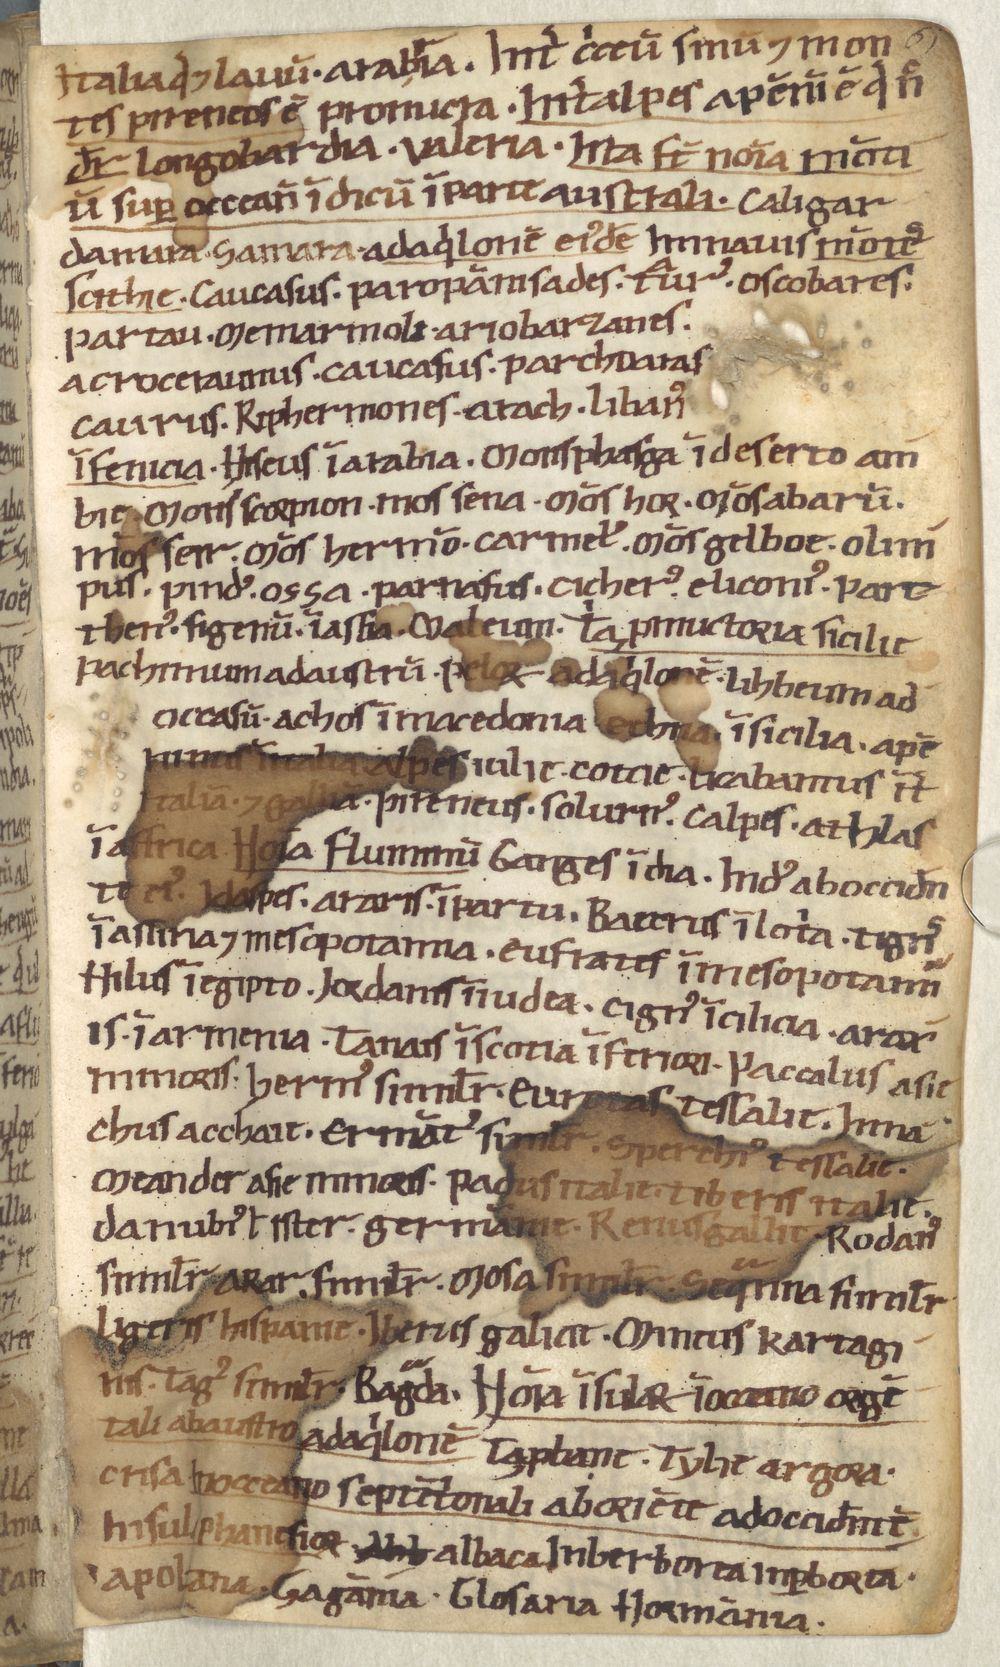 Italia qꝫ ⁊ lauū. arabia. Int̄ ōcceū sinū ⁊ mon
tes pireneos ē prouicia. Int̄ alpes apēniū ē q̄ n̄c
d̄r longobardia. Valeria. Ista st̄ noīa mōtiū
ū sup occeanū īdicū ī parte australi. Caligar
damara. Samara. adaq̇lonē eiꝰdē Imauis mōtēꝰ
scithie. Caucasus. paropāmisades. taurꝰ. oscobares.
partau. Memarmoli. ariobarzanes.
acroceraunius. caucasus. parchoatras
caurus. Ripher mones. arach. libanꝰ
ī fenicia. Hiseus ī arabia. Mons phasga ī deserto ara
bie. Mons scorpion. mos sena. mōs hor. mōs abarū.
mōs seir. mōs hermō. carmelꝰ. mōs gelboe. olim
pus. pindꝰ. ossa. parnasus. cicherꝰ. eliconꝰ. Part
thenꝰ. sigeuū. ī assia. Maleum. tꝰa pmuctoria sicilie
pachinum ad austrū. pelor adaq̇lonē. lilibeum ad
occasū. achos ī macedonia ethna. ī sicilia. apē
ninus ī italia. Alpes iulie. cottie. licabantus īt̄
Italia. ⁊ gallia. pireneus. solurirꝰ. Calpes. athlas
ī affrica Noīa fluminū Ganges ī dia. Indꝰ ab occidn̄
te eiꝰ. Idaspes. araris. ī partu. Bactrus ī loca. tigrisꝰ
ī assiria ⁊ mesopotamia. eufrates ī mesopotamia
Nilus ī egipto. Jordanis ī iudea. cignꝰ ī cilicia. arax
is. ī armenia. Tanais ī scotia īferiori. Paccalus asie
minoris. hermꝰ similr̄. Eurotas tessalie. Inna
chus acchaie. Ermātꝰ similr̄. Sperchiꝰ tessalie.
Meander asie minoris. Padus italie. tiberis italie.
danubiꝰ l̄ ister. germanie. Renus gallie. Rodanꝰ
similr̄ arar. similr̄. Mosa similr̄. Sequana similr̄
ligeris hispanie. Iberus galicie. Minius kartagi
nis. Tagꝰ similr̄. Bagada. Noīa īsular̄ ī occeano oriē
tali ab austro adaq̇lonē Taprbane. Tylie argora.
crisa In occeano septētrionali ab oriēte ad occidntē.
Insul phanesior albaca Inbertorta inpborta.
apolana. Gagania. Glosaria Normania.